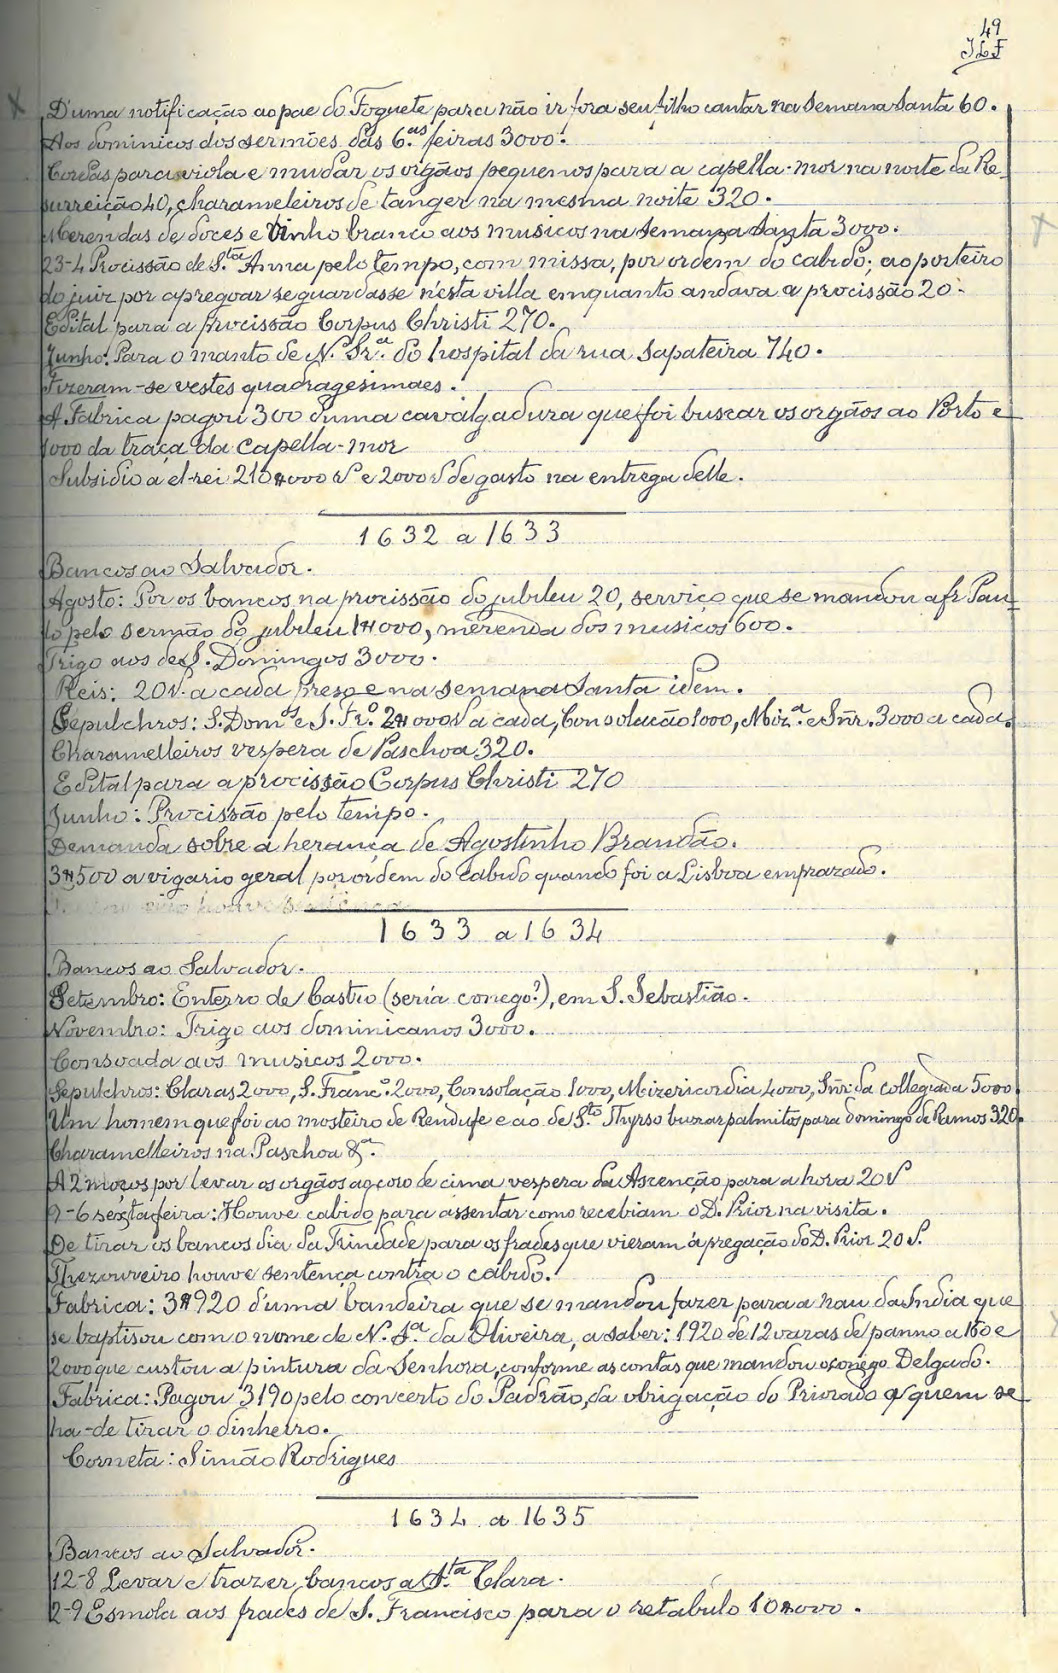 49
J L F
D'uma notificação ao pae do Foguete para não ir fora seu filho cantar na Semana Santa 60.
Aos dominicos dos sermões das 6.as feiras 3000.
Cordas para viola e mudar os orgãos pequenos para a capella-mor na noite da Re-
surreição 40, charameleiros de tanger na mesma noite 320.
Merendas de doces e vinho branco aos musicos na Semana Santa 3000.
23-4 Procissão de S.ta Anna pelo tempo, com missa, por ordem do cabido; ao porteiro
do juiz por apregoar se guardasse n'esta villa emquanto andava a procissão 20.
Edital para a procissão Corpus Christi 270.
Junho: Para o manto de N.ª Sr.ª do hospital da rua Sapateira 740.
Fizeram-se vestes quadragesimaes.
A Fabrica pagou 300 d'uma cavalgadura que foi buscar os orgãos ao Porto e
1000 da traça da capella-mor
Subsidio a el-rei 210$000 rs e 2000 rs de gasto na entrega delle.
1632 a 1633
Bancos ao Salvador.
Agosto: Por os bancos na procissão do jubileu 20, serviço que se mandou a fr. Pau-
lo pelo sermão do jubileu 1$000, merenda dos musicos 600.
Trigo aos de S. Domingos 3000.
Reis: 20 rs. a cada preso e na semana Santa idem.
Sepulchros: S. Dom.os e S. Fr.o 2$000 rs a cada, Consolação 1000, Miz.a e Sñr. 3000 a cada.
Charamelleiros vespera de Paschoa 320.
Edital para a procissão Corpus Christi 270
Junho: Procissão pelo tempo.
Demanda sobre a herança de Agostinho Brandão.
3$500 a vigario geral por ordem do cabido quando foi a Lisboa emprazado.
houve sentença
1633 a 1634
Bancos ao Salvador.
Setembro: Enterro de Castro (seria conego?), em S. Sebastião.
Novembro: Trigo aos dominicanos 3000.
Consoada aos musicos 2000.
Sepulchros: Claras 2000, S. Franc.o 2000, Consolação 1000, Mizericordia 4000, Sñr. da Collegiada 5000.
Um homem que foi ao mosteiro de Rendufe e ao de S.to Thyrso buscar palmitos para domingo de Ramos 320.
Charamelleiros na Paschoa &.a
A 2 moços por levar os orgãos ao coro de cima vespera da Ascenção para a hora 20 rs
9-6 sexta feira: Houve cabido para assentar como recebiam o D. Prior na visita.
De tirar os bancos dia da Trindade para os frades que vieram á pregação do D. Prior 20 rs.
Thezoureiro houve sentença contra o cabido.
Fabrica: 3$920 d'uma bandeira que se mandou fazer para a nau da India que
se baptisou com o nome de N. S.a da Oliveira, a saber: 1920 de 12 varas de panno a 160 e
2000 que custou a pintura da Senhora, conforme as contas que mandou o conego Delgado.
Fabrica: Pagou 3190 pelo concerto do Padrão, da obrigação do Priorado a quem se
ha-de tirar o dinheiro.
Corneta: Simão Rodrigues
1634 a 1635
Bancos ao Salvador.
12-8 Levar e trazer bancos a S.ta Clara.
2-9 Esmola aos frades de S. Francisco para o retabulo 10$000.